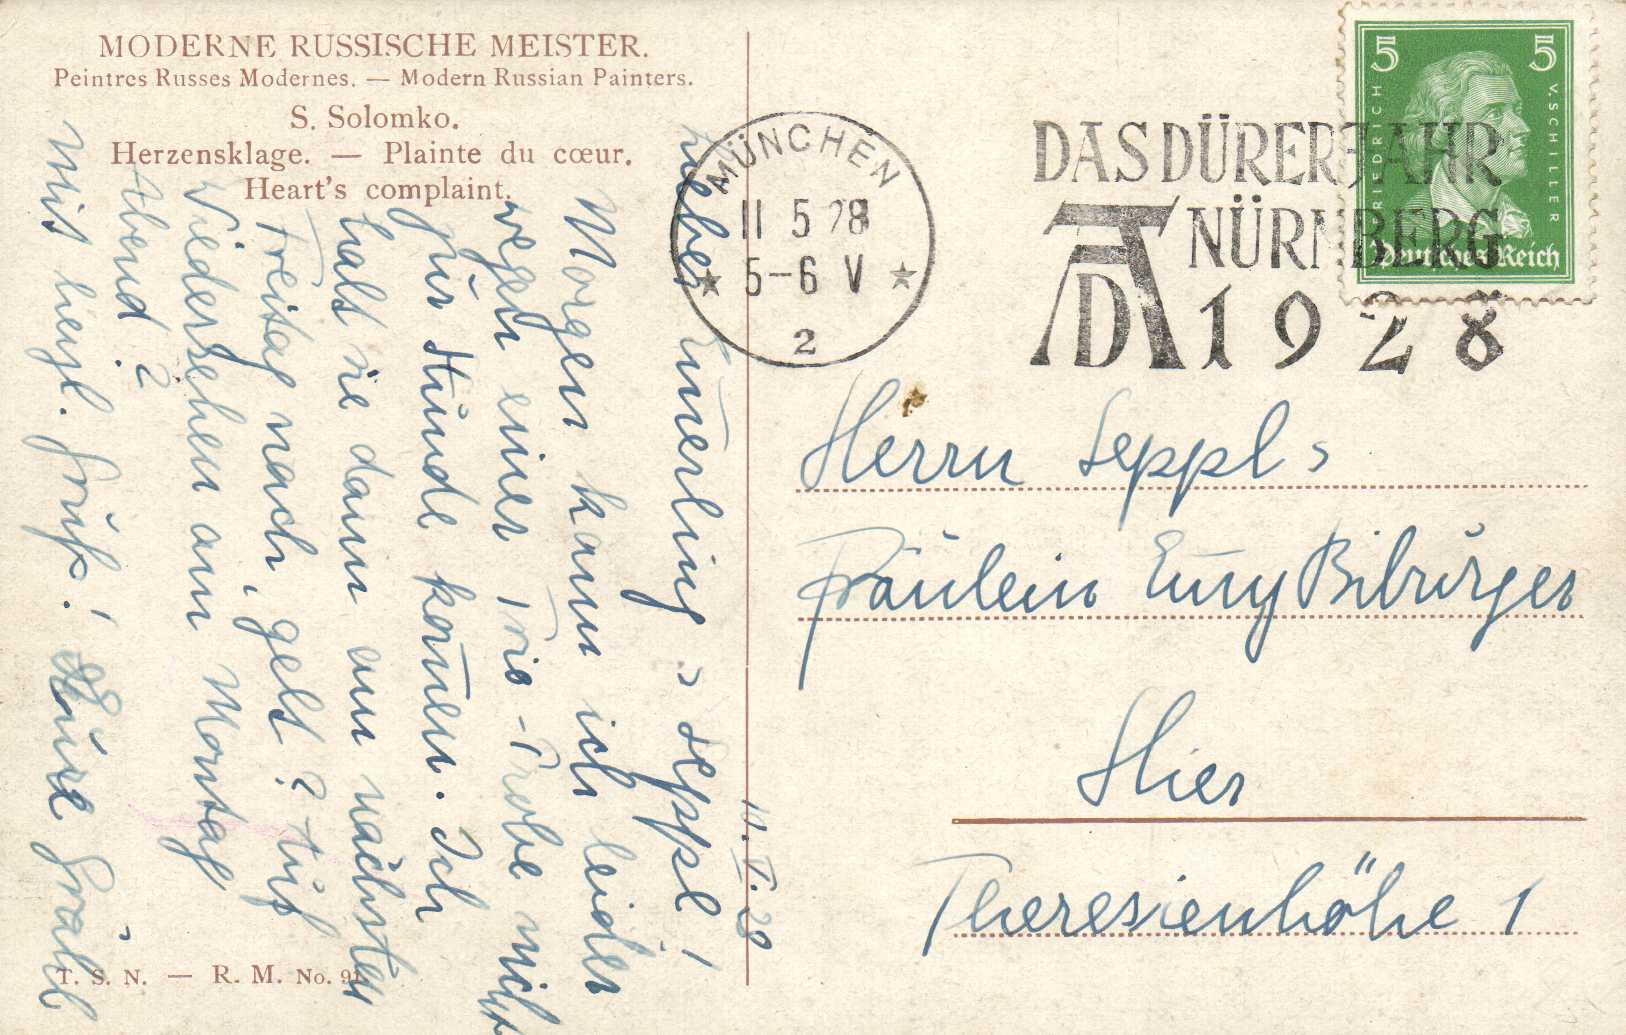 MODERNE RUSSISCHE MEISTER.
Peintres Russes Modernes. — Modern Russian Painters.
S. Solomko.
Herzensklage. — Plainte du cœur.
Heart's complaint.
10. V. 28
Lieber Emerling = Seppl!
Morgen kann ich leider
wegen einer Trio-Probe nicht
zur Stunde kom̄en. Ich
hol's sie dann am nächsten
Freitag nach, gelt? Auf
Wiedersehen am Montag
Abend?
Mit herzl. Gruß!
Gräbl
T. S. N. — R. M. No. 91
MÜNCHEN
11 5 28
5-6 V
2
DAS DÜRERJAHR
NÜRNBERG
AD 1928
5 5
FRIEDRICH V. SCHILLER
Deutsches Reich
Herrn Seppl =
Fräulein Em̄y Biburger
Hier
Theresienhöhe 1